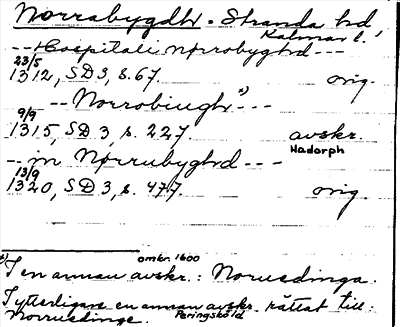 Norrabygdhr. Stranda hd,
Kalmar l.
-- Hospitali nørrobyghrd ---
23/5
1312, SD 3, s. 67. orig.
-- Norrobiughr *) ---
9/9
1315, SD 3, s. 227. avskr.
Hadorph
-- in Nørrubyghrd ---
13/9
1320, SD 3, s. 477. orig.
omkr. 1600
*) I en annan avskr.: Noruedinga.
Ytterligare en annan avskr. rättat till:
Peringskiöld
Norruedinge.